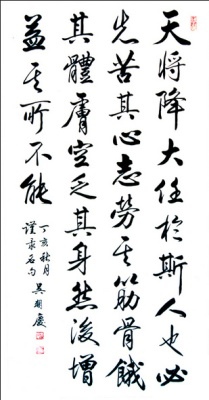 天將降大任於斯人也必
先苦其心志勞其筋骨餓
其體膚空乏其身然後增
益其所不能
丁亥秋月
謹录名句